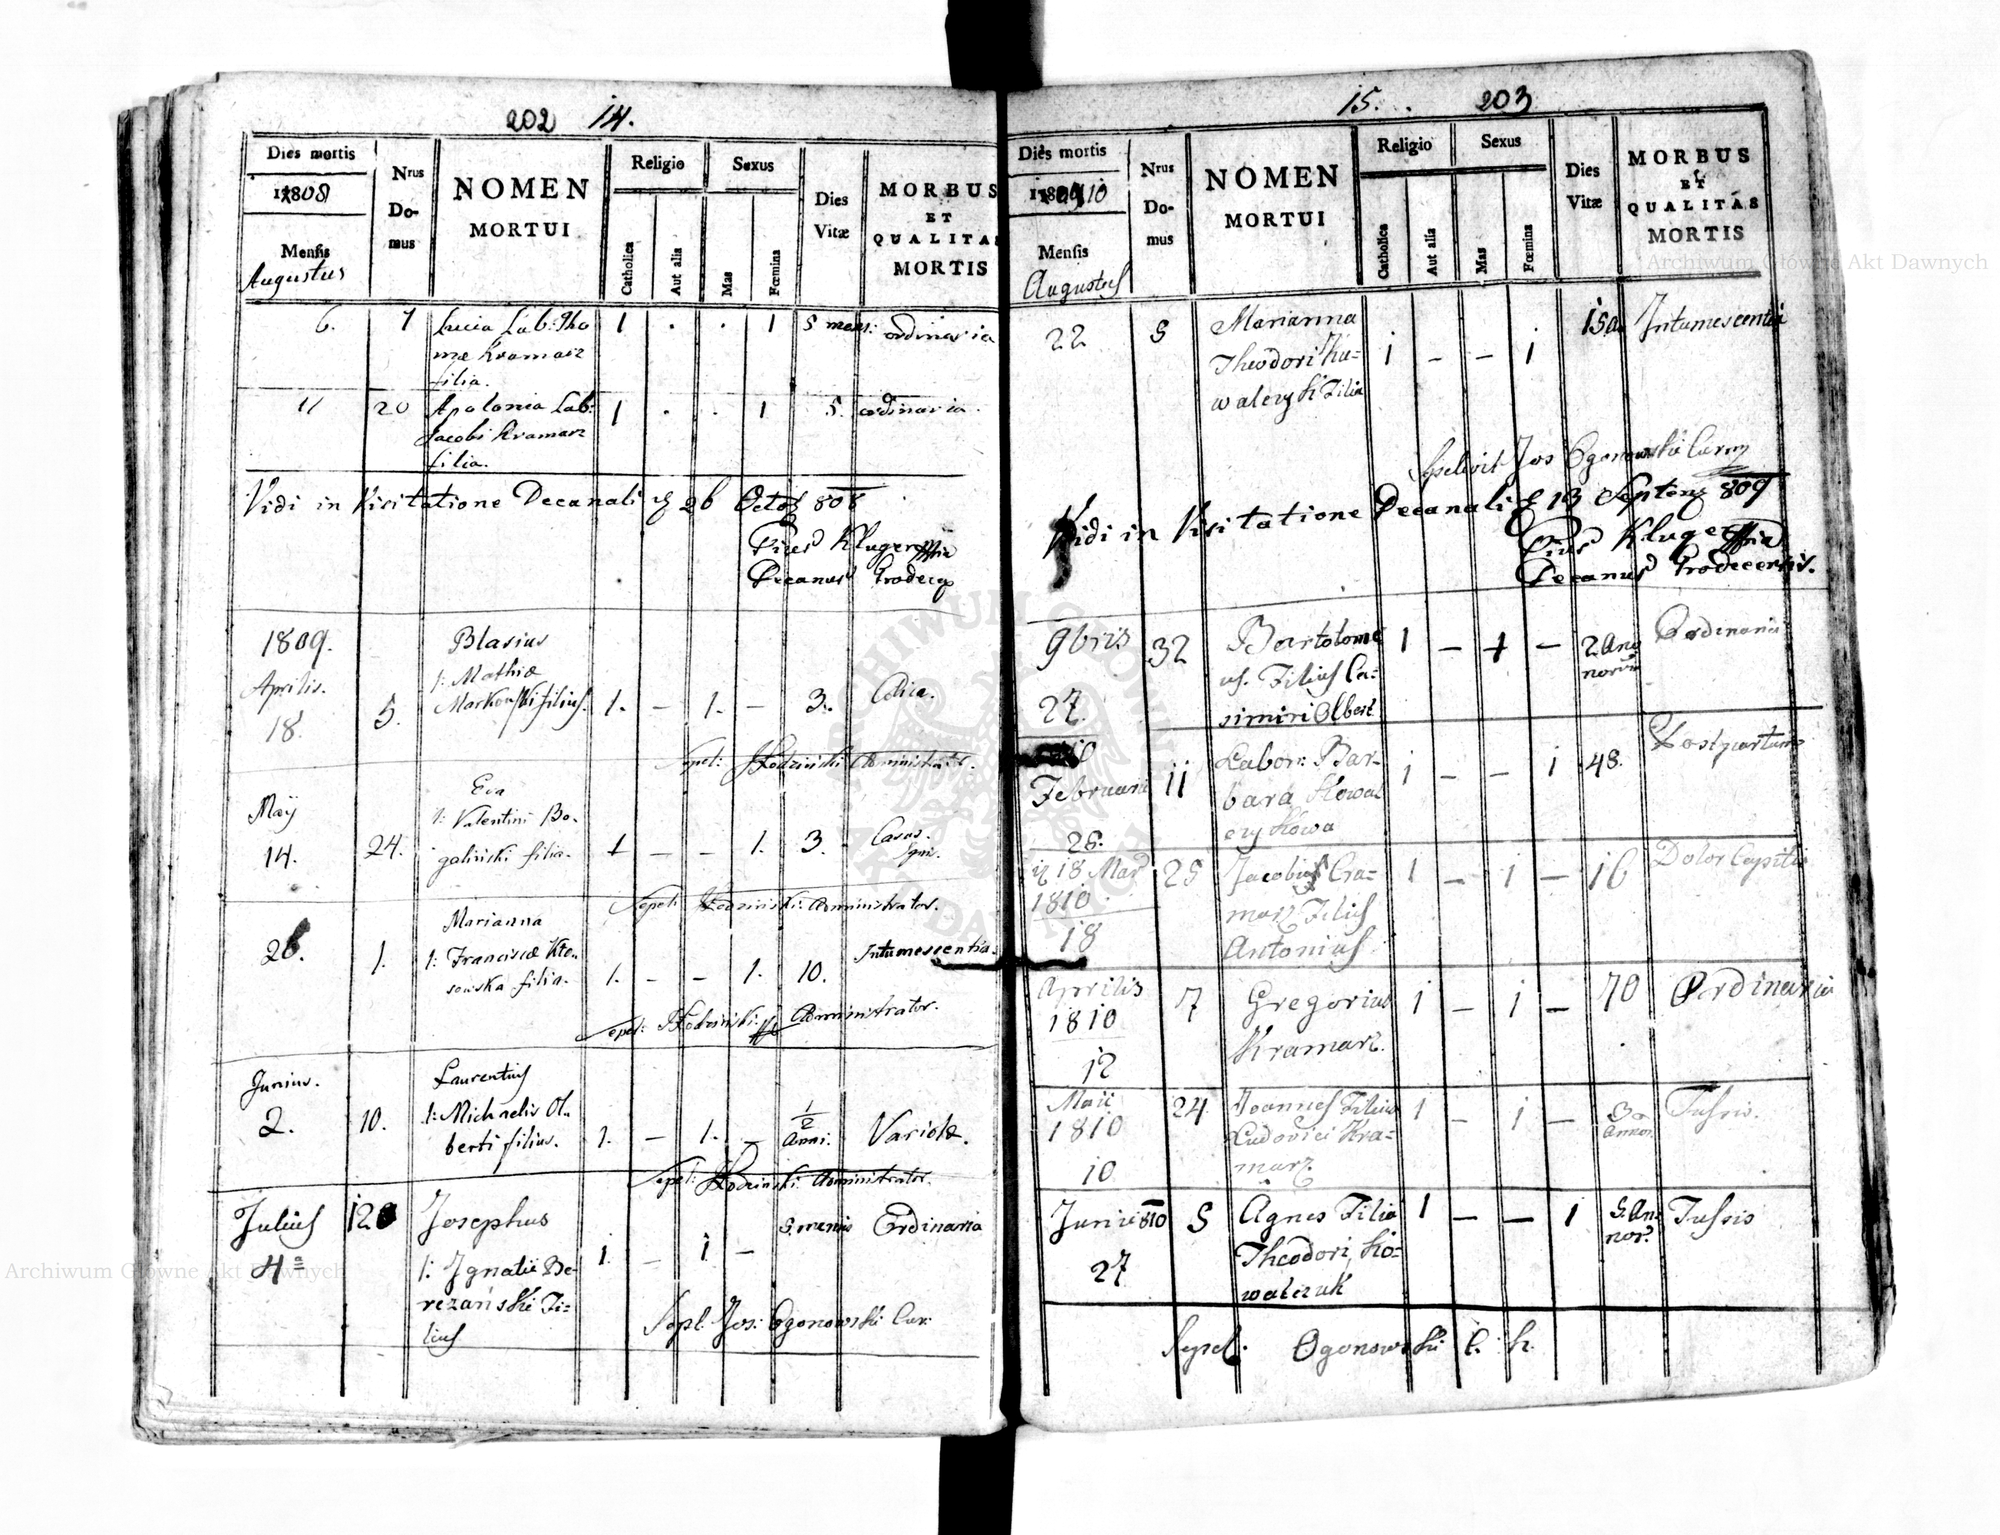 202 14.
Dies mortis
1808
Mensis
Augustus
Nrus
Do-
mus
NOMEN
MORTUI
Religio
Catholica
Aut alia
Sexus
Mas
Fœmina
Dies
Vitæ
MORBUS
ET
QUALITAS
MORTIS
6. 7 Lucia Lab: Tho 1 . . 1 5 mens: ordinaria
mæ Kramarz
filia.
11 20 Apolonia Lab: 1 . . 1 5. ordinaria.
Jacobi Kramarz
filia.
Vidi in Visitatione Decanali 26 808
Pius Kluger
Decanus
1809.
Aprilis.
18. 5.
Blasius
1: Mathiæ
filius. 1. – 1. – 3.
Sepel: Administrator.
Maÿ
14. 24.
Eva
1: Valentini Bo-
galiński filia. 1 – – 1. 3. Casus.
Sepel: Administrator.
26. 1.
Marianna
1: Franciscæ
filia. 1. – – 1. 10. Intumescentia.
Sepel: Administrator.
Junius.
2. 10.
Laurentius
1: Michaelis Ol-
berti filius. 1. – 1. – 1/2
Anni. Variolæ.
Sepel: Administrator.
Julius
4a
120
Josephus
1: Ignatii Be-
rezański Fi-
lius
1. – 1 – Ordinaria
Sepel: Jos: Ogonowski Cur:
15. 203
Dies mortis
1810
Mensis
Augustus
Nrus
Do-
mus
NOMEN
MORTUI
Religio
Catholica
Aut alia
Sexus
Mas
Fœmina
Dies
Vitæ
MORBUS
ET
QUALITAS
MORTIS
22 5 Marianna
Theodori Ko-
waleryk Filia 1 – – 1 Intumescentia
Sepelivit Jos Ogonowski
Vidi in Visitatione Decanali 13 809
Pius Kluger
Decanus Grodecensis.
9bris
27. 32
Bartolome
us. Filius Ca-
simiri Olbert 1 – 1 – 2 An
norum Ordinaria
Februarii
26. 11
Labor: Bar-
bara Kowal
1 – – 1 48. Post partum
18 Mar
1810
18
25
Jacobus Cra-
marz Filius
Antonius 1 – 1 – 16 Dolor Capitis
Aprilis
1810
12
7
Gregorius
Kramarz. 1 – 1 – 70 Ordinaria
Maii
1810
10
24
Joannes Filius
Ludovici Kra-
marz. 1 – 1 – 3
Annor. Tussis.
Junii 810
27
5
Agnes Filia
Theodori Ko-
walczuk 1 – – 1 5. An-
nor. Tussis
Sepel. Ogonowski
Archiwum Główne Akt Dawnych
Archiwum Główne Akt Dawnych
ARCHIWUM GŁÓWNE AKT DAWNYCH